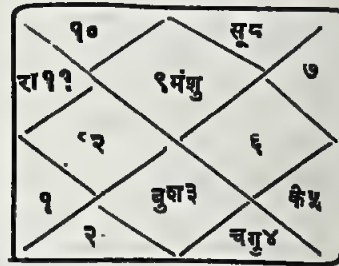 १० सू८
रा११ ९मंशु ७
१२ ६
१ बुश३ के५
२ चगु४